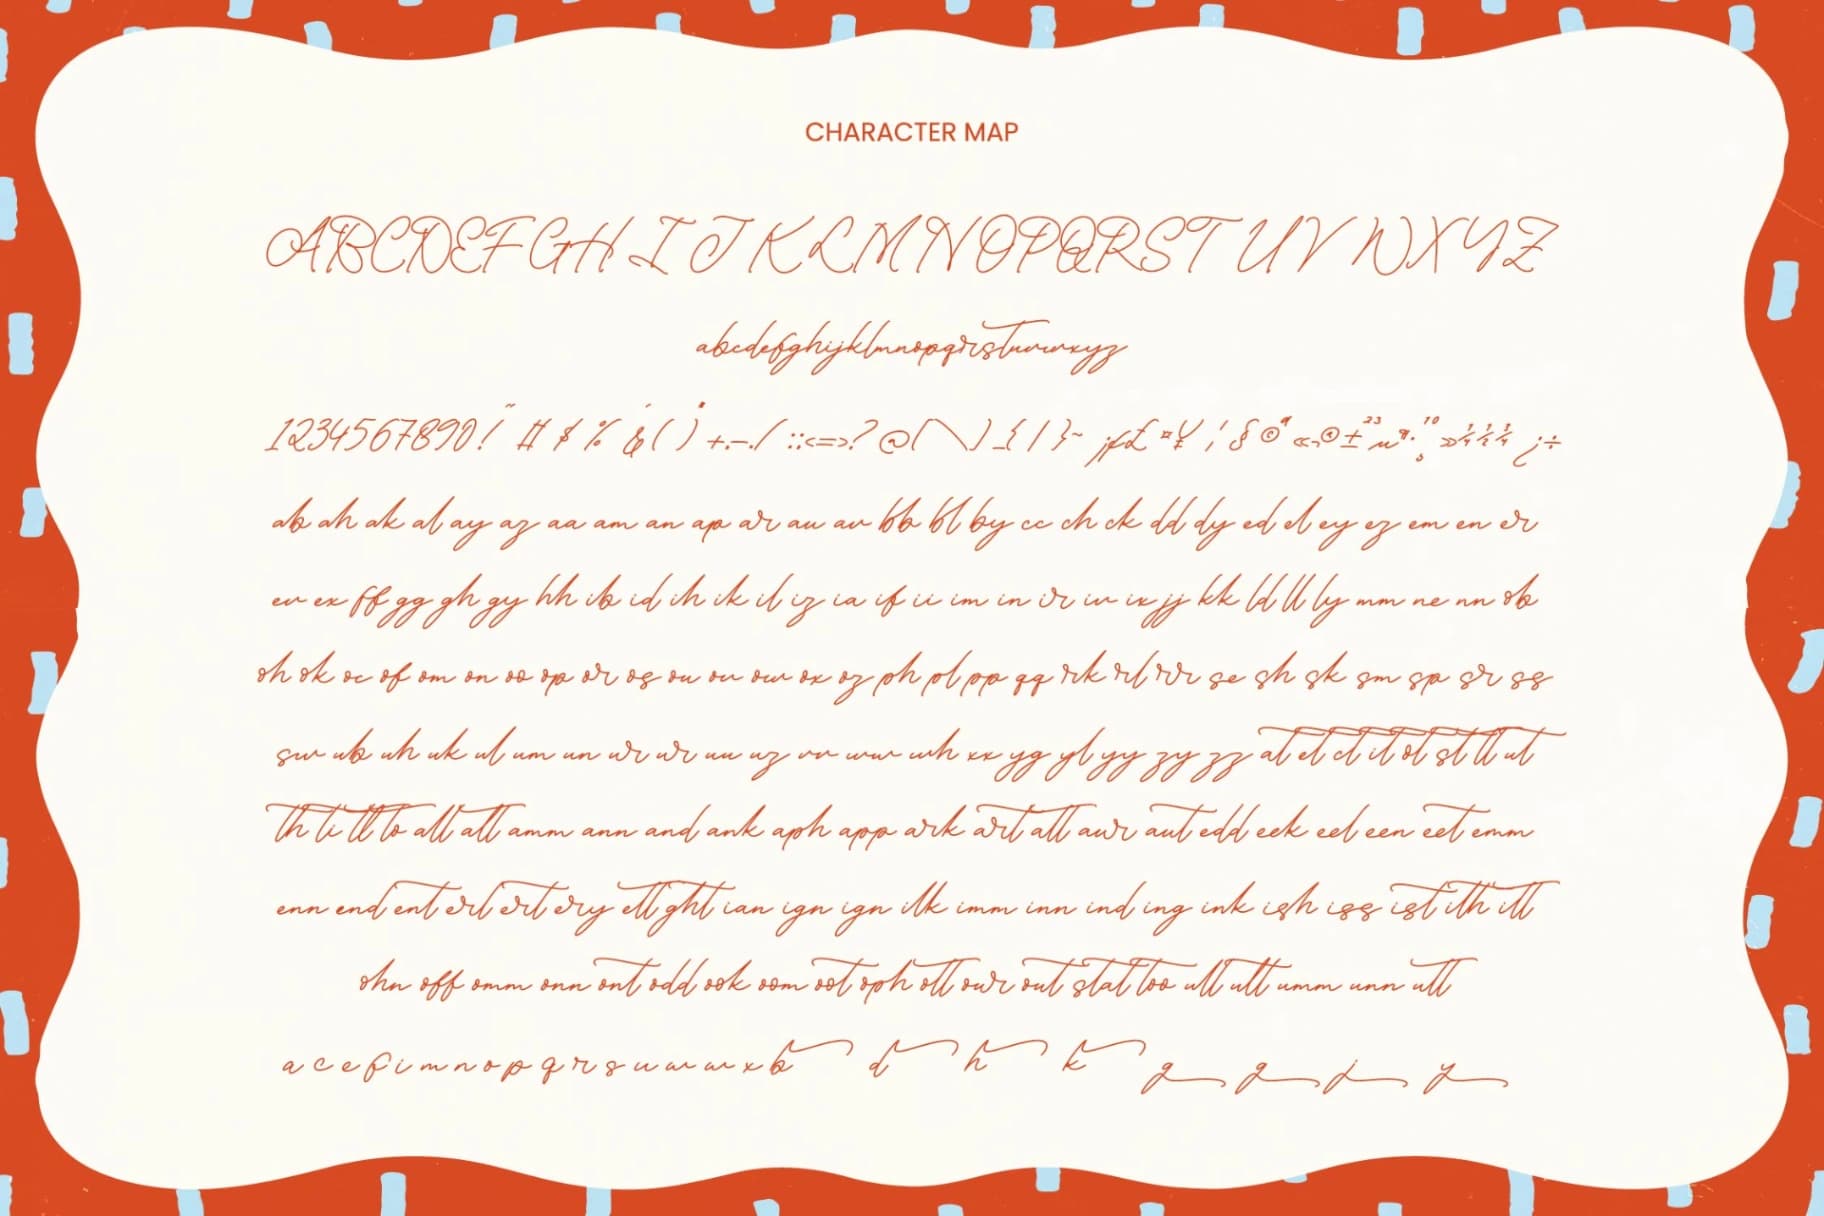 CHARACTER MAP
ABCDEFGHIJKLMNOPQRSTUVWXYZ
abcdefghijklmnopqrstuvwxyz
1234567890! # $ % & ( ) +,-./ :;<=>? @ [ \ ] _ { | } ~ ¡ ¢ £ ¤ ¥ ¦ § © ª « ¬ ® ± ²³ µ ¶ · ¸ ¹º » ¼ ½ ¾ ¿ ÷
ab ah ak al ay az aa am an ap ar au av bb bl by cc ch ck dd dy ed el ey ez em en er
ev ex ff gg gh gy hh ib id ih ik il iz ia if ii im in ir iv ix jj kk ld ll ly mm ne nn ob
oh ok oc of om on oo op or os ou ov ow ox oz ph pl pp qq rk rl rr se sh sk sm sp sr ss
sw ub uh uk ul um un ur ur uu uz vv ww wh xx yg yl yy zy zz at et ct it ot st tt ut
th ti tt to all att amm ann and ank aph app ark art att awr aut edd eek eel een eet emm
enn end ent erl ert ery ett ght ian ign ign ilk imm inn ind ing ink ish iss ist ith itt
ohn off omm onn ont odd ook oom oot oph ott owr out stat too ull utt umm unn utt
a c e f i m n o p q r s u v w x b d h k g g j y